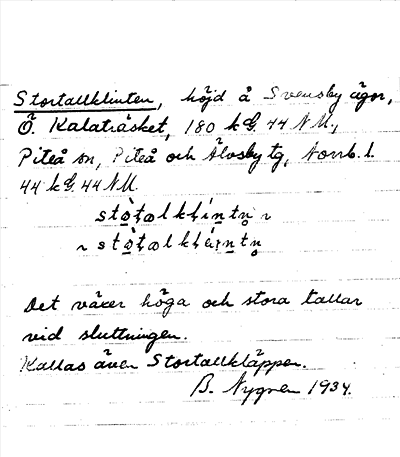 Stortallklinten, höjd å Svensby ägor,
Ö. Kalaträsket, 180 k G. 44 N U.,
Piteå sn, Piteå och Älvsby tg, Norrb. l.
44 k G. 44 N U.
Det växer höga och stora tallar
vid sluttningen.
Kallas även Stortallkläppen.
B. Nygren 1934.